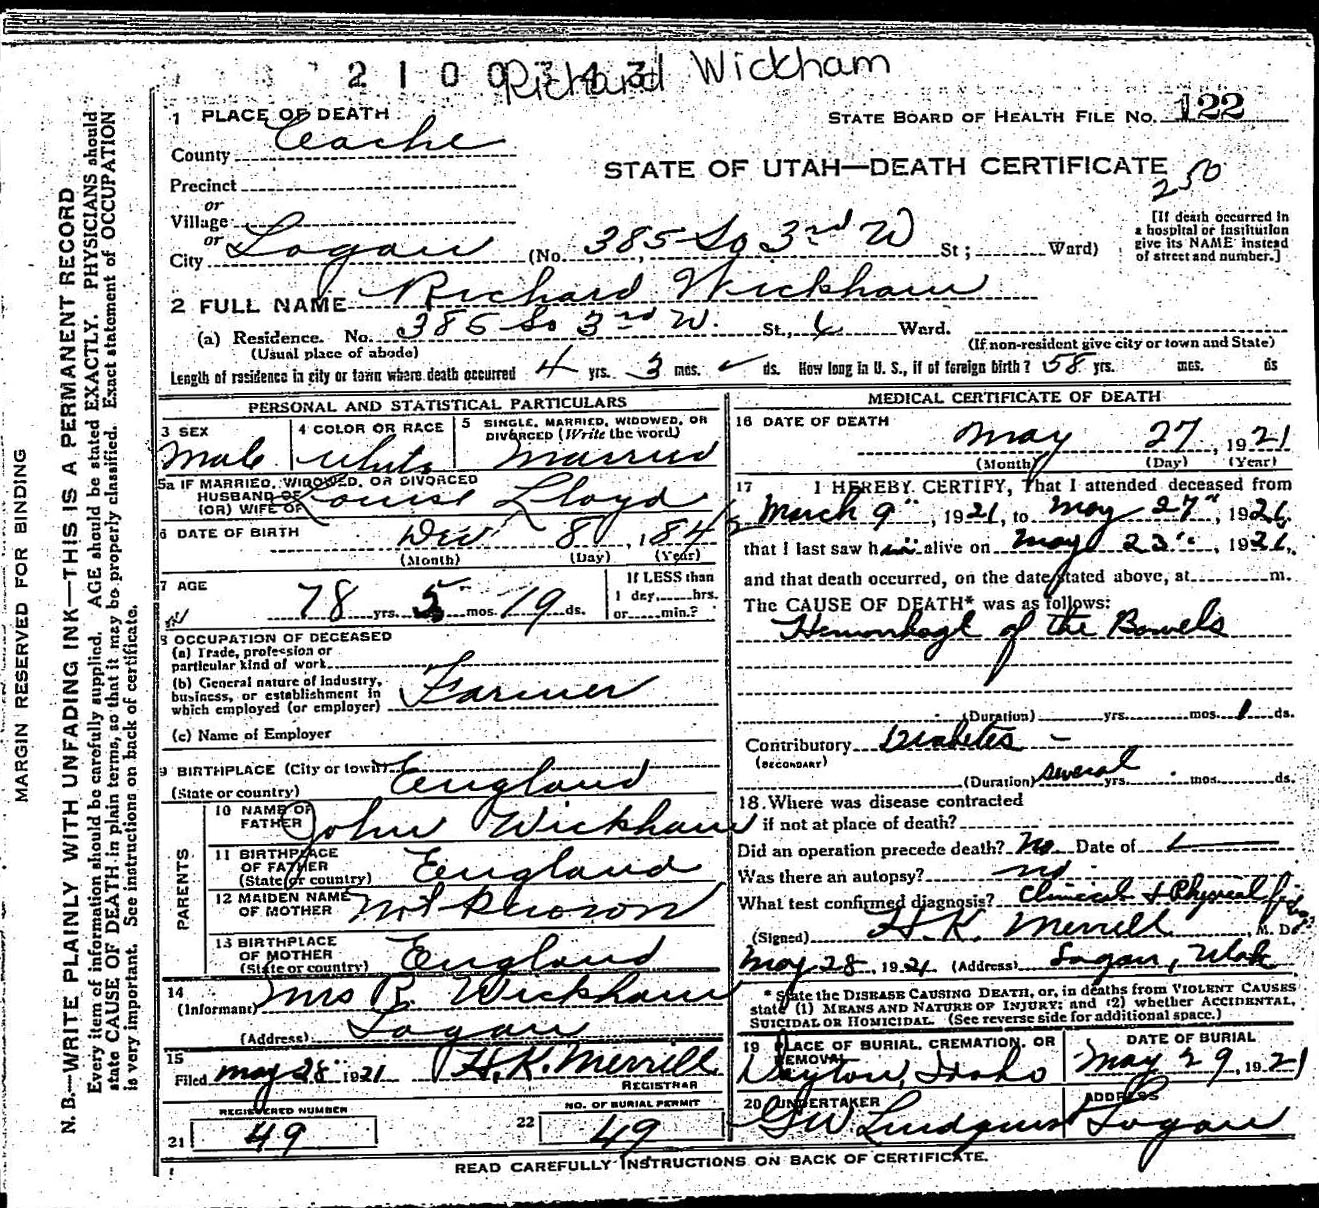 2 1 0 0 3 4 3
Richard Wickham
1 PLACE OF DEATH
STATE BOARD OF HEALTH FILE NO. 122
County Cache
STATE OF UTAH—DEATH CERTIFICATE
250
Precinct
or
Village
or
City Logan (No. 385 So 3rd W St; Ward)
[If death occurred in
a hospital or institution
give its NAME instead
of street and number.]
2 FULL NAME Richard Wickham
(a) Residence. No. 385 So 3rd W. St., Ward.
(Usual place of abode)
(If non-resident give city or town and State)
Length of residence in city or town where death occurred 4 yrs. 3 mos. ds. How long in U. S., if of foreign birth? 58 yrs. mos. ds
PERSONAL AND STATISTICAL PARTICULARS
3 SEX
Male
4 COLOR OR RACE
White
5 SINGLE, MARRIED, WIDOWED, OR
DIVORCED (Write the word)
Married
5a IF MARRIED, WIDOWED, OR DIVORCED
HUSBAND OF
(OR) WIFE OF Louise Lloyd
6 DATE OF BIRTH Dec 8, 1842
(Month) (Day) (Year)
7 AGE
78 yrs. 5 mos. 19 ds.
If LESS than
1 day, hrs.
or min.?
8 OCCUPATION OF DECEASED
(a) Trade, profession or
particular kind of work
(b) General nature of industry,
business, or establishment in
which employed (or employer) Farmer
(c) Name of Employer
9 BIRTHPLACE (City or town)
(State or country) England
PARENTS
10 NAME OF
FATHER John Wickham
11 BIRTHPLACE
OF FATHER
(State or country) England
12 MAIDEN NAME
OF MOTHER Not Known
13 BIRTHPLACE
OF MOTHER
(State or country) England
14
(Informant) Mrs R. Wickham
(Address) Logan
15
Filed May 28" 1921 H. K. Merrill
REGISTRAR
REGISTERED NUMBER
21 49
NO. OF BURIAL PERMIT
22 49
MEDICAL CERTIFICATE OF DEATH
16 DATE OF DEATH
May 27, 1921
(Month) (Day) (Year)
17 I HEREBY CERTIFY, That I attended deceased from
March 9", 1921, to May 27", 1921,
that I last saw him alive on May 23", 1921,
and that death occurred, on the date stated above, at m.
The CAUSE OF DEATH* was as follows:
Hemorrhage of the Bowels
(Duration) yrs. mos. 1 ds.
Contributory Diabetes -
(SECONDARY)
(Duration) several yrs. mos. ds.
18. Where was disease contracted
if not at place of death?
Did an operation precede death? No Date of
Was there an autopsy? no
What test confirmed diagnosis? Clinical & Physical
(Signed) H. K. Merrill, M. D.
May 28, 1921 (Address) Logan, Utah
* State the DISEASE CAUSING DEATH, or, in deaths from VIOLENT CAUSES
state (1) MEANS AND NATURE OF INJURY; and (2) whether ACCIDENTAL,
SUICIDAL OR HOMICIDAL. (See reverse side for additional space.)
19 PLACE OF BURIAL, CREMATION, OR
REMOVAL
Dayton, Idaho
DATE OF BURIAL
May 29, 1921
20 UNDERTAKER
GW Lindquist
ADDRESS
Logan
READ CAREFULLY INSTRUCTIONS ON BACK OF CERTIFICATE.
MARGIN RESERVED FOR BINDING
N. B.—WRITE PLAINLY WITH UNFADING INK—THIS IS A PERMANENT RECORD
Every item of information should be carefully supplied. AGE should be stated EXACTLY. PHYSICIANS should
state CAUSE OF DEATH in plain terms, so that it may be properly classified. Exact statement of OCCUPATION
is very important. See instructions on back of certificate.